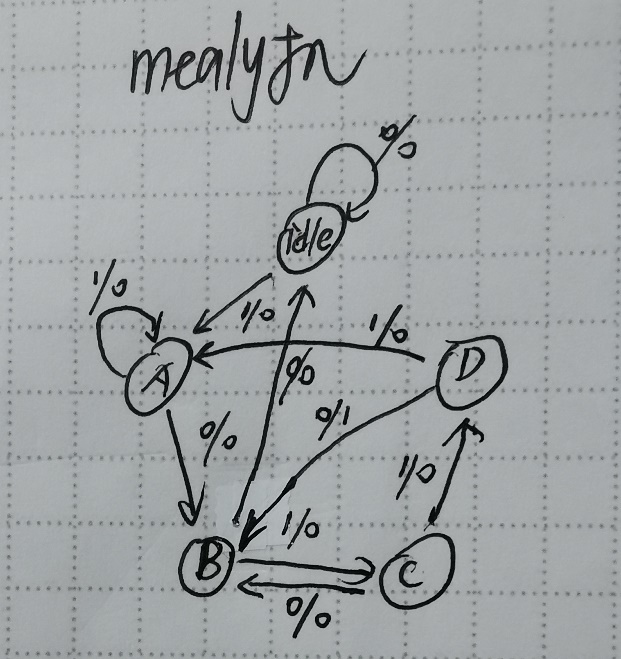 mealy fn
0/0
idle
1/0
1/0
1/0
A
0/0
D
0/0
0/1
1/0
1/0
B
C
0/0